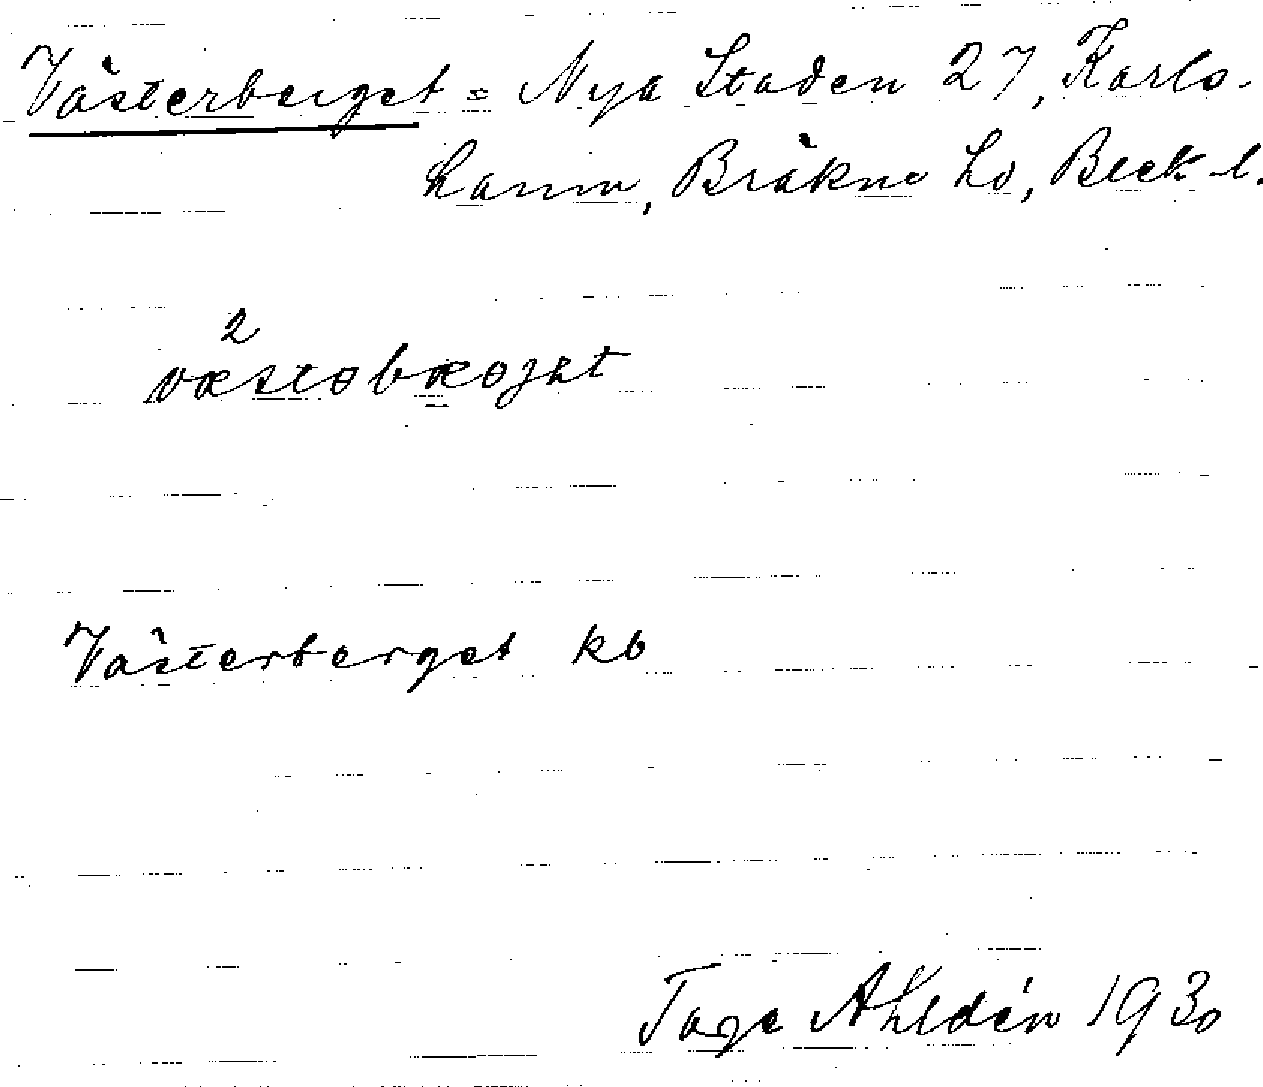 Västerberget = Nya Staden 27, Karls-
hamn, Bräkne hd, Bleck l.
2
væstəbæqjət
Västerberget kb
Tage Ahldén 1930